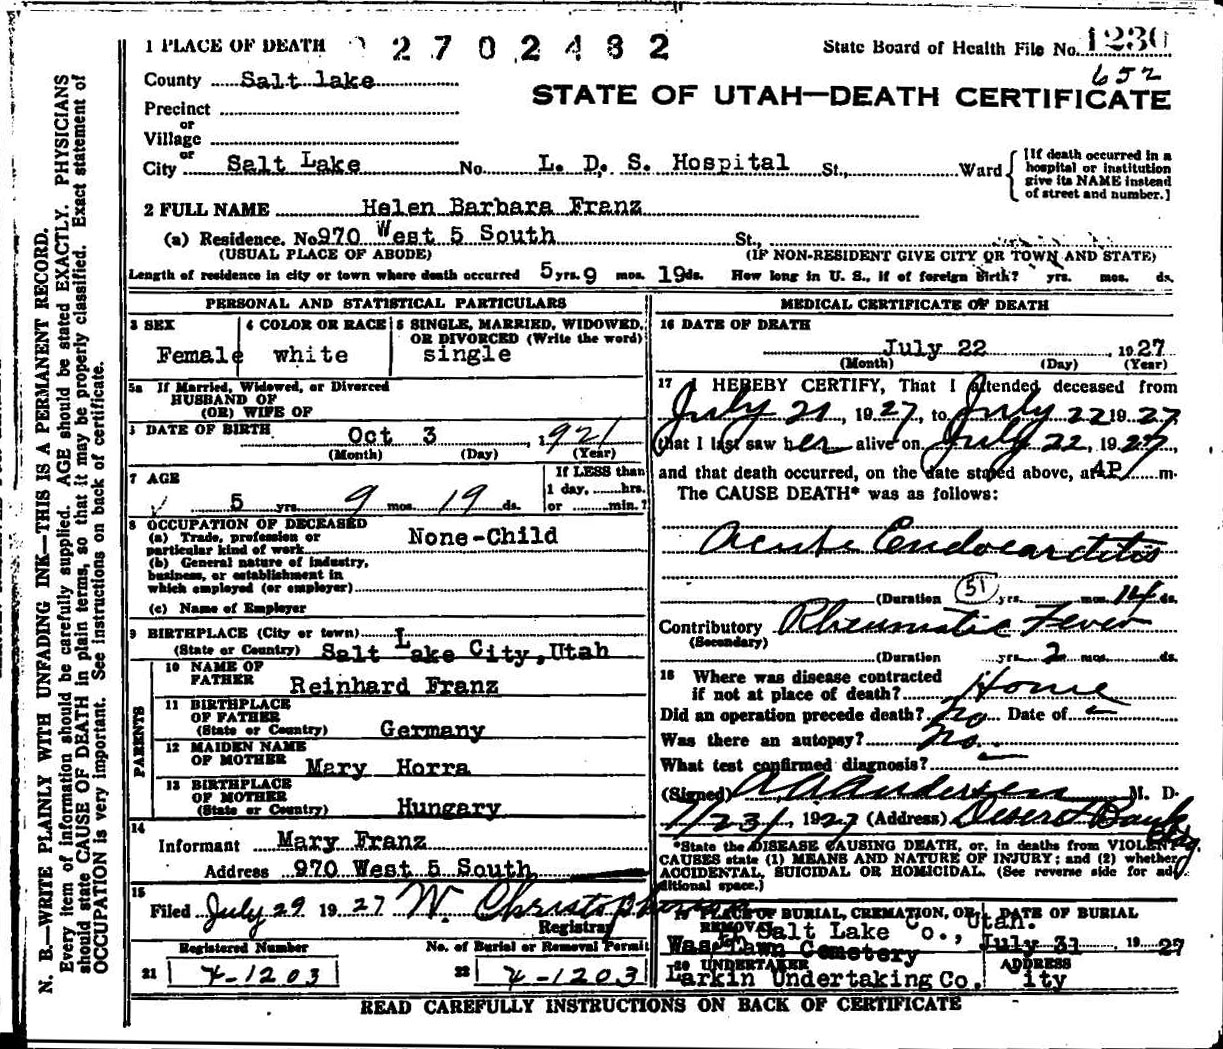 1 PLACE OF DEATH 2702432 State Board of Health File No. 1230
652
County Salt lake
STATE OF UTAH—DEATH CERTIFICATE
Precinct
or
Village
or
City Salt Lake No. L. D. S. Hospital St., Ward
[If death occurred in a
hospital or institution
give its NAME instead
of street and number.]
2 FULL NAME Helen Barbara Franz
(a) Residence. No. 970 West 5 South St.,
(USUAL PLACE OF ABODE) (IF NON-RESIDENT GIVE CITY OR TOWN AND STATE)
Length of residence in city or town where death occurred 5 yrs. 9 mos. 19 ds. How long in U. S., if of foreign birth? yrs. mos. ds.
PERSONAL AND STATISTICAL PARTICULARS
3 SEX 4 COLOR OR RACE 5 SINGLE, MARRIED, WIDOWED,
OR DIVORCED (Write the word)
Female white single
5a If Married, Widowed, or Divorced
HUSBAND OF
(OR) WIFE OF
DATE OF BIRTH Oct 3, 1921
(Month) (Day) (Year)
7 AGE If LESS than
1 day, ......hrs.
5 yrs. 9 mos. 19 ds. or ......min.?
8 OCCUPATION OF DECEASED
(a) Trade, profession or
particular kind of work None-Child
(b) General nature of industry,
business, or establishment in
which employed (or employer)
(c) Name of Employer
9 BIRTHPLACE (City or town)
(State or Country) Salt Lake City, Utah
PARENTS
10 NAME OF
FATHER Reinhard Franz
11 BIRTHPLACE
OF FATHER
(State or Country) Germany
12 MAIDEN NAME
OF MOTHER Mary Horra
13 BIRTHPLACE
OF MOTHER
(State or Country) Hungary
14
Informant Mary Franz
Address 970 West 5 South
15
Filed July 29 1927 W. Christopherson
Registrar
Registered Number No. of Burial or Removal Permit
21 4-1203 22 4-1203
MEDICAL CERTIFICATE OF DEATH
16 DATE OF DEATH
July 22, 1927
(Month) (Day) (Year)
17 I HEREBY CERTIFY, That I attended deceased from
July 21, 1927, to July 22 1927,
that I last saw her alive on July 22, 1927,
and that death occurred, on the date stated above, at 4P m.
The CAUSE DEATH* was as follows:
Acute Endocarditis
(Duration 51 yrs. mos. 14 ds.
Contributory Rheumatic Fever
(Secondary)
(Duration yrs. 2 mos. ds.
18 Where was disease contracted
if not at place of death? Home
Did an operation precede death? No Date of —
Was there an autopsy? No
What test confirmed diagnosis? —
(Signed) A A Anderson M. D.
7/23/, 1927 (Address) Deseret Bank Bldg.
*State the DISEASE CAUSING DEATH, or, in deaths from VIOLENT
CAUSES state (1) MEANS AND NATURE OF INJURY; and (2) whether
ACCIDENTAL, SUICIDAL OR HOMICIDAL. (See reverse side for ad-
ditional space.)
19 PLACE OF BURIAL, CREMATION, OR
REMOVAL DATE OF BURIAL
Salt Lake Co., Utah.
Was. Lawn Cemetery July 31 1927
20 UNDERTAKER ADDRESS
Larkin Undertaking Co. ity
READ CAREFULLY INSTRUCTIONS ON BACK OF CERTIFICATE
N. B.—WRITE PLAINLY WITH UNFADING INK—THIS IS A PERMANENT RECORD.
Every item of information should be carefully supplied. AGE should be stated EXACTLY. PHYSICIANS
should state CAUSE OF DEATH in plain terms, so that it may be properly classified. Exact statement of
OCCUPATION is very important. See instructions on back of certificate.